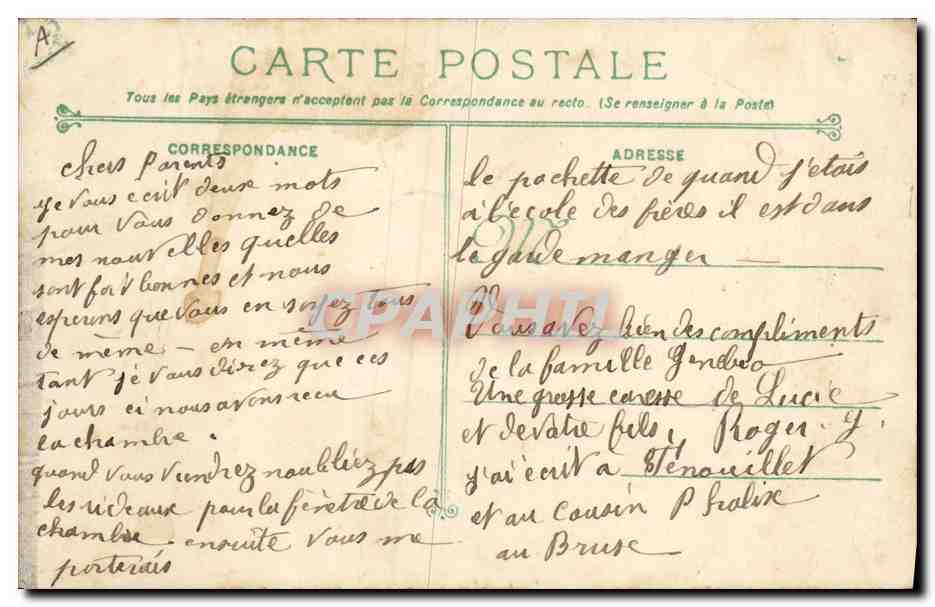 A
CARTE POSTALE
Tous les Pays étrangers n'acceptent pas la Correspondance au recto. (Se renseigner à la Poste)
CORRESPONDANCE
chers Parents
je vous ecrit deux mots
pour vous donnez de
mes nouvelles quelles
sont fort bonnes et nous
esperons que vous en soyez tous
de même - en même
tant je vous direz que ces
jours ci nous avons recu
la chambre.
quand vous viendrez noubliez pas
les rideaux pour la fênétre de la
chambre. ensuite vous me
porterais
ADRESSE
le pochette de quand j'etais
à l'école des fréres il est dans
le garde manger —
Vous avez bien des compliments
de la famille
Une grosse caresse de Lucie
et de votre fils, Roger. Y.
j'ai écrit a Ténouillet
et au Cousin P
au Bruse
CPAPHIL